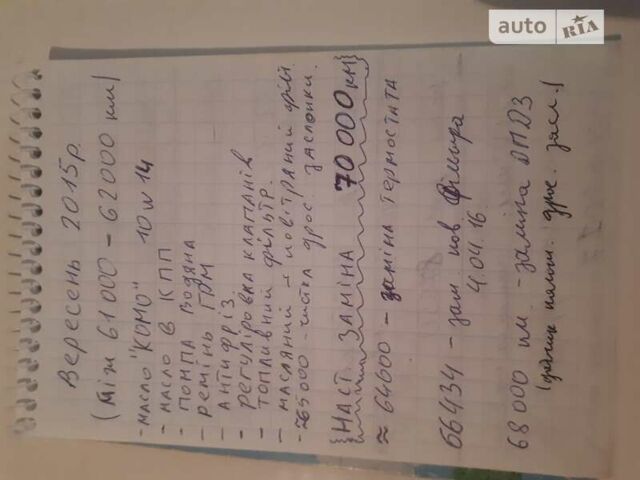 auto RIA
Вересень 2015р.
(між 61000 - 62000 км)
- масло "КОМО" 10w14
- масло в КПП
- помпа водяна
- ремінь ГРМ
- антифріз
- регуліровка клапанів
- топливний фільтр.
- масляний і повітряний філ.
- ≈65000 - чистка дрос. заслонки.
{НАСТ. ЗАМІНА 70000 км}
≈ 64600 - заміна термостата
66434 - зам пов. фільтра
4.04.16
68000 км - заміна ДПДЗ
(датчик полож. дрос. засл.)